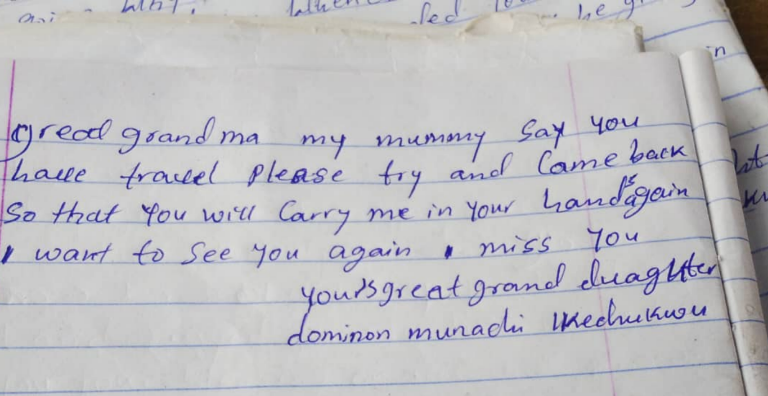 great grand ma my mummy say you
have travel please try and Came back
So that you will Carry me in your hands again
I want to See you again I miss you
yours great grand duaghter
dominon munachi Ikechukwu